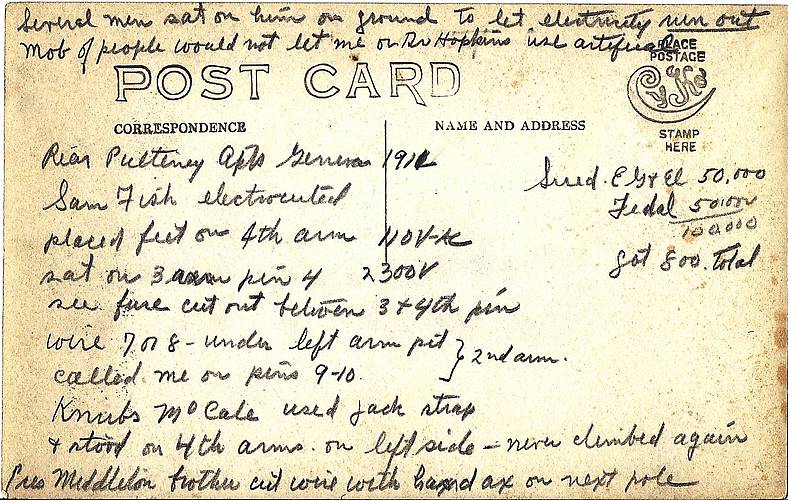 Several men sat on him on ground to let electricity run out
Mob of people would not let me or Dr Hopkins use artificial
POST CARD
PLACE
POSTAGE
STAMP
HERE
CYKO
CORRESPONDENCE
NAME AND ADDRESS
Rear Pulteney Apts Geneva 1911
Sam Fish electrocuted
placed feet on 4th arm 110V-AC
sat on 3 arm pin 4 2300V
see fuse cut out between 3 + 4th pin
wire 7 or 8 - under left arm pit
called me on pins 9-10.
} 2nd arm.
Knubs McCale used jack strap
+ stood on 4th arms. on left side - never climbed again
Pres Middleton brother cut wire with hand ax on next pole
Sued. E G + El 50,000
Fedal 50,000
100,000
got 800. total